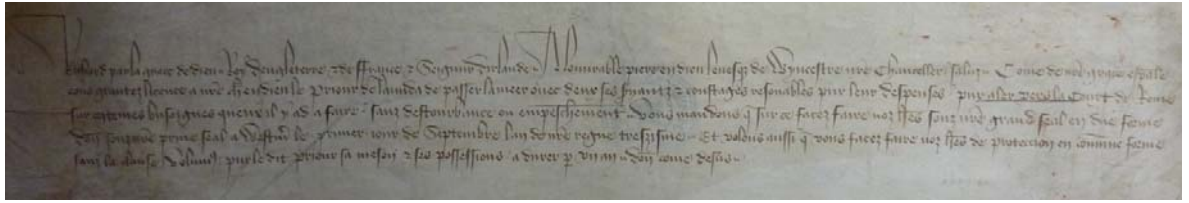 Richard par la grace de dieu Roy dengleterre & de ffrance & Seignur dirlande Al honurable piere en dieu levesq de Wyncestre nre Chanceller salutz Come de nre grace espale
eons grantez licence a nre ch en dieu le Priour de launda de passer la meer ovec deux ses svantz & coustages resonables pur leur despenses pur aler vers la Court de Rome
sur certeines busoignes queux il y ad a faire sanz destourbance ou empeschement Vous mandons q sur ce facez faire noz lres souz nre grand seal en due forme
Don souz nre prive seal a Westm le primer iour de Septembre lan de nre regne treszisme Et volons aussi q vous facez faire noz lres de proteccion en commune forme
sanz la clause volum pur le dit Priour sa meson & ses possessions a durer p un an Don come desus